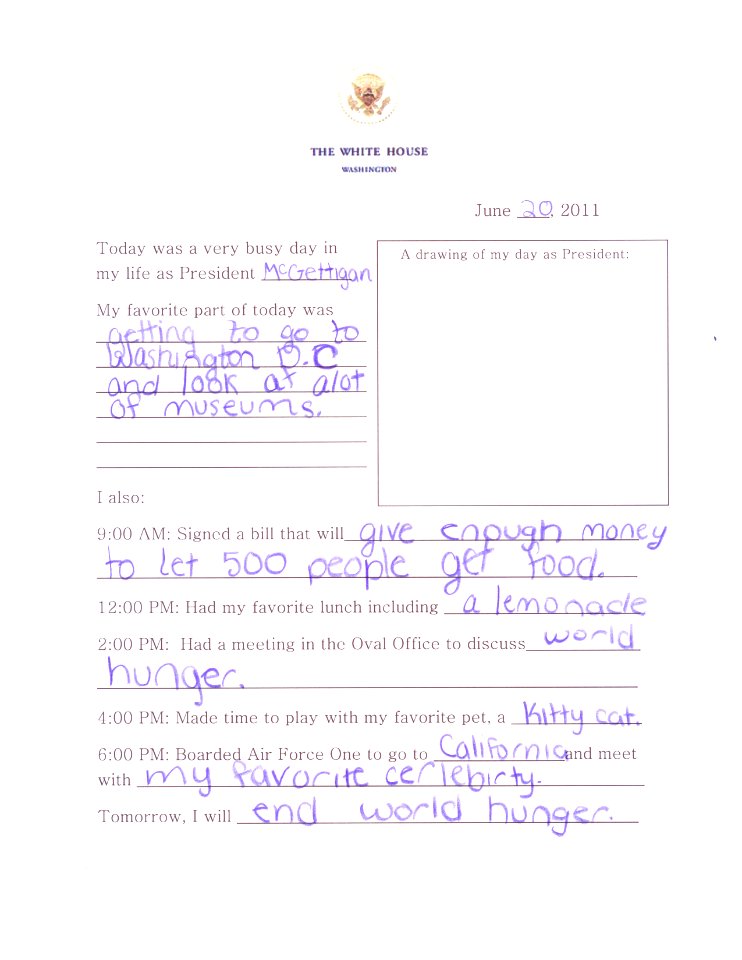 THE WHITE HOUSE
WASHINGTON
June 20, 2011
Today was a very busy day in
my life as President McGettigan
A drawing of my day as President:
My favorite part of today was
getting to go to
Washington D.C
and look at alot
of museums.
I also:
9:00 AM: Signed a bill that will give enough money
to let 500 people get food.
12:00 PM: Had my favorite lunch including a lemonade
2:00 PM: Had a meeting in the Oval Office to discuss world
hunger.
4:00 PM: Made time to play with my favorite pet, a Kitty cat.
6:00 PM: Boarded Air Force One to go to California and meet
with my favorite cerlebirty.
Tomorrow, I will end world hunger.